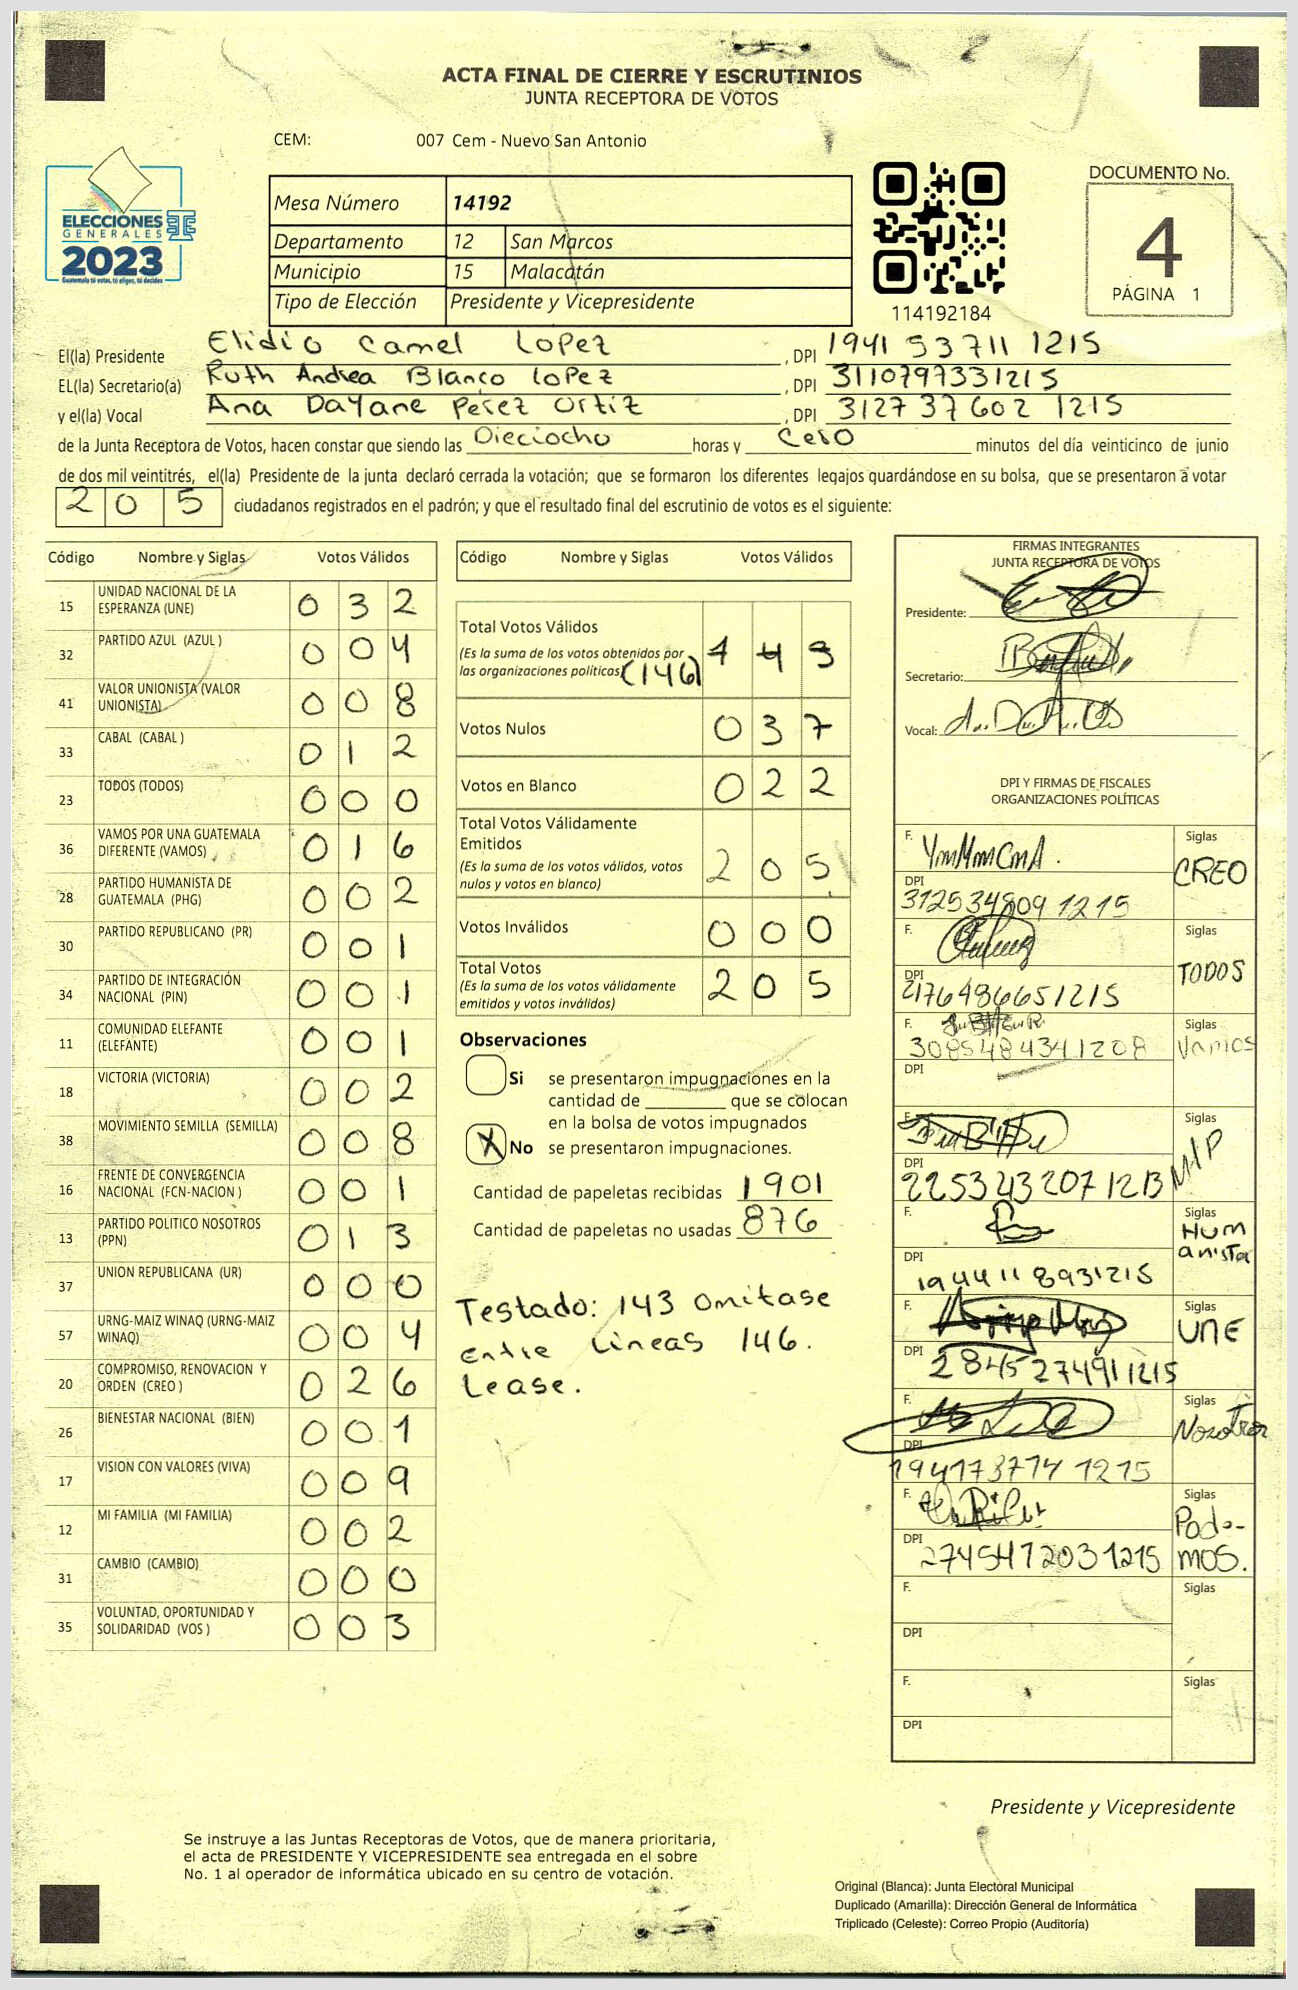 ACTA FINAL DE CIERRE Y ESCRUTINIOS
JUNTA RECEPTORA DE VOTOS
CEM: 007 Cem - Nuevo San Antonio
ELECCIONES
GENERALES
2023
Guatemala tú votas, tú eliges, tú decides
Mesa Número 14192
Departamento 12 San Marcos
Municipio 15 Malacatán
Tipo de Elección Presidente y Vicepresidente
114192184
DOCUMENTO No.
4
PÁGINA 1
El(la) Presidente Elidio Camel Lopez , DPI 1941 53711 1215
EL(la) Secretario(a) Ruth Andrea Blanco Lopez , DPI 3110797331215
y el(la) Vocal Ana Dayane Perez Ortiz , DPI 3127 37602 1215
de la Junta Receptora de Votos, hacen constar que siendo las Dieciocho horas y cero minutos del día veinticinco de junio
de dos mil veintitrés, el(la) Presidente de la junta declaró cerrada la votación; que se formaron los diferentes legajos guardándose en su bolsa, que se presentaron a votar
205 ciudadanos registrados en el padrón; y que el resultado final del escrutinio de votos es el siguiente:
Código Nombre y Siglas Votos Válidos
15 UNIDAD NACIONAL DE LA ESPERANZA (UNE) 0 3 2
32 PARTIDO AZUL (AZUL ) 0 0 4
41 VALOR UNIONISTA (VALOR UNIONISTA) 0 0 8
33 CABAL (CABAL ) 0 1 2
23 TODOS (TODOS) 0 0 0
36 VAMOS POR UNA GUATEMALA DIFERENTE (VAMOS) 0 1 6
28 PARTIDO HUMANISTA DE GUATEMALA (PHG) 0 0 2
30 PARTIDO REPUBLICANO (PR) 0 0 1
34 PARTIDO DE INTEGRACIÓN NACIONAL (PIN) 0 0 1
11 COMUNIDAD ELEFANTE (ELEFANTE) 0 0 1
18 VICTORIA (VICTORIA) 0 0 2
38 MOVIMIENTO SEMILLA (SEMILLA) 0 0 8
16 FRENTE DE CONVERGENCIA NACIONAL (FCN-NACION ) 0 0 1
13 PARTIDO POLITICO NOSOTROS (PPN) 0 1 3
37 UNION REPUBLICANA (UR) 0 0 0
57 URNG-MAIZ WINAQ (URNG-MAIZ WINAQ) 0 0 4
20 COMPROMISO, RENOVACION Y ORDEN (CREO ) 0 2 6
26 BIENESTAR NACIONAL (BIEN) 0 0 1
17 VISION CON VALORES (VIVA) 0 0 9
12 MI FAMILIA (MI FAMILIA) 0 0 2
31 CAMBIO (CAMBIO) 0 0 0
35 VOLUNTAD, OPORTUNIDAD Y SOLIDARIDAD (VOS ) 0 0 3
Código Nombre y Siglas Votos Válidos
Total Votos Válidos
(Es la suma de los votos obtenidos por
las organizaciones políticas) (146) 1 4 3
Votos Nulos 0 3 7
Votos en Blanco 0 2 2
Total Votos Válidamente
Emitidos
(Es la suma de los votos válidos, votos
nulos y votos en blanco) 2 0 5
Votos Inválidos 0 0 0
Total Votos
(Es la suma de los votos válidamente
emitidos y votos inválidos) 2 0 5
Observaciones
Si se presentaron impugnaciones en la
cantidad de ________ que se colocan
en la bolsa de votos impugnados
X No se presentaron impugnaciones.
Cantidad de papeletas recibidas 1901
Cantidad de papeletas no usadas 876
Testado: 143 omitase
Entre Lineas 146.
Lease.
FIRMAS INTEGRANTES
JUNTA RECEPTORA DE VOTOS
Presidente:
Secretario:
Vocal:
DPI Y FIRMAS DE FISCALES
ORGANIZACIONES POLÍTICAS
F. Siglas CREO
DPI 312534809 1215
F. Siglas TODOS
DPI 2176486651215
F. Siglas Vamos
3085484341208
DPI
F. Siglas MLP
DPI
F. Siglas Humanista
DPI 1944118931215
F. Siglas UNE
DPI 2845274911215
F. Siglas Nosotros
DPI 194173774 1215
F. Siglas Podemos.
DPI 2745472031215
F. Siglas
DPI
F. Siglas
DPI
Presidente y Vicepresidente
Se instruye a las Juntas Receptoras de Votos, que de manera prioritaria,
el acta de PRESIDENTE Y VICEPRESIDENTE sea entregada en el sobre
No. 1 al operador de informática ubicado en su centro de votación.
Original (Blanca): Junta Electoral Municipal
Duplicado (Amarilla): Dirección General de Informática
Triplicado (Celeste): Correo Propio (Auditoría)